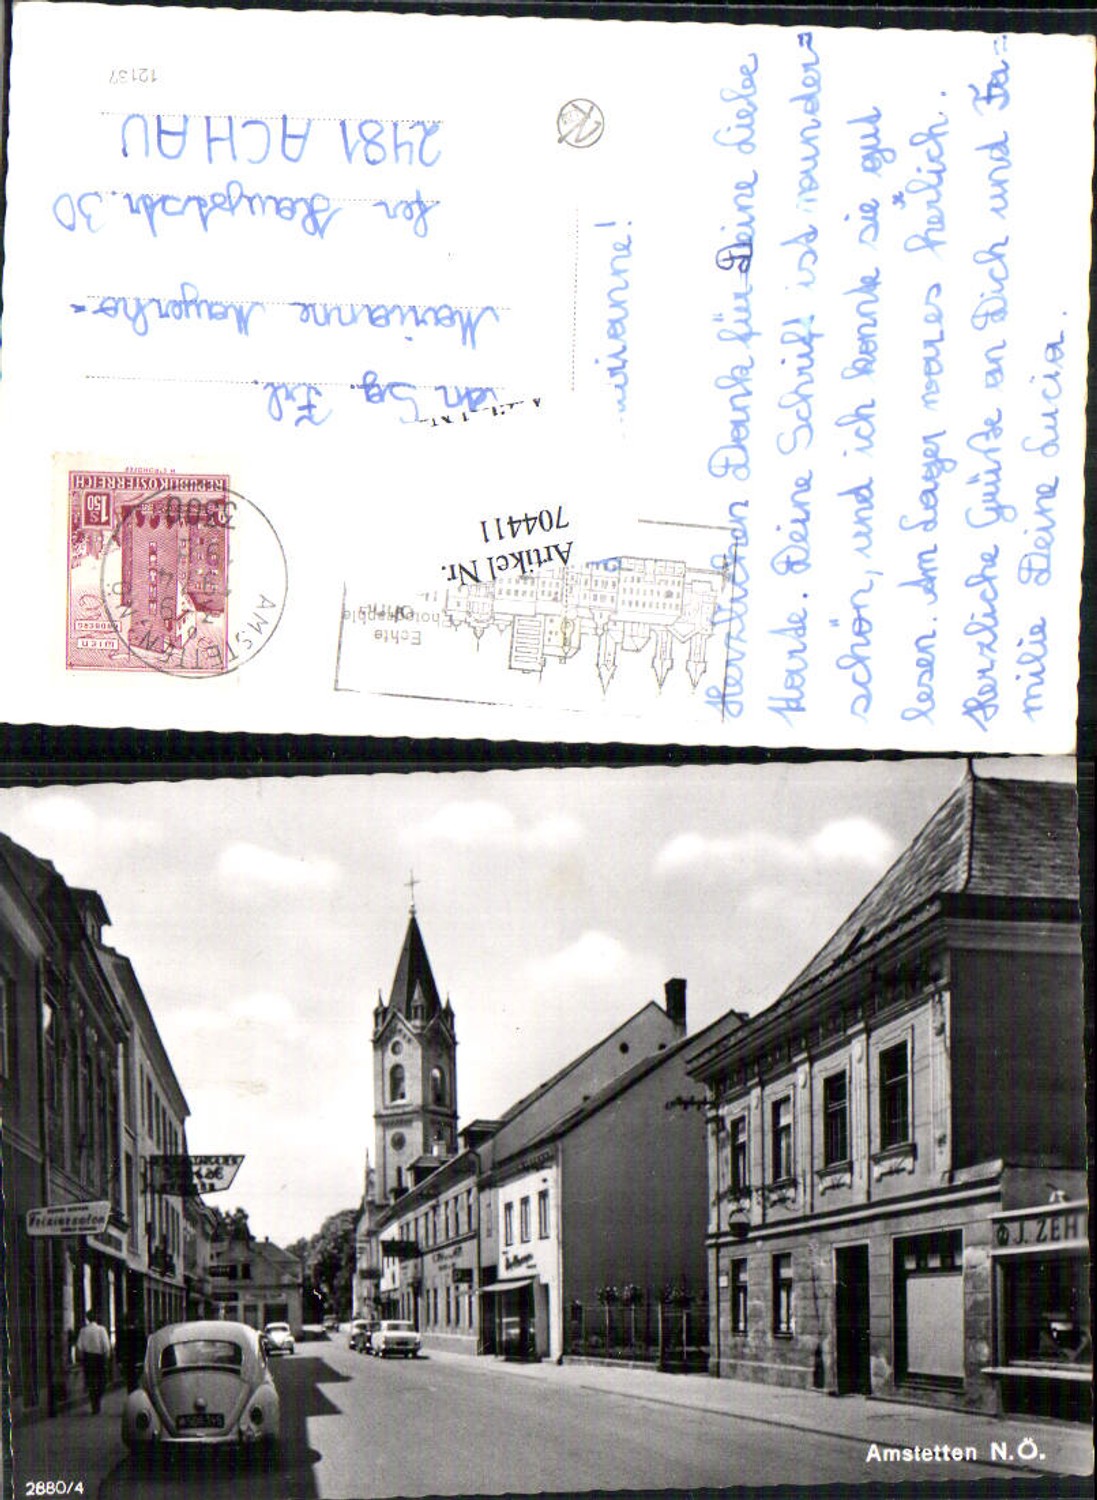 12137
an Sg. Frl.
Marianne Mayerho=
fer Hauptstr. 30
2481 ACHAU
REPUBLIK ÖSTERREICH
S 1.50
WIEN
ERDBERG
3300
AMSTETTEN, N.Ö.
Echte
Photographie
Artikel Nr.
704411
Herzlichen Dank für Deine liebe
Karte. Deine Schrift ist wunder=
schön, und ich konnte sie gut
lesen. Am Lager war es herlich.
Herzliche Grüße an Dich und Fa=
milie Deine Lucia.
Friseursalon
J. ZEH
Amstetten N.Ö.
2880/4